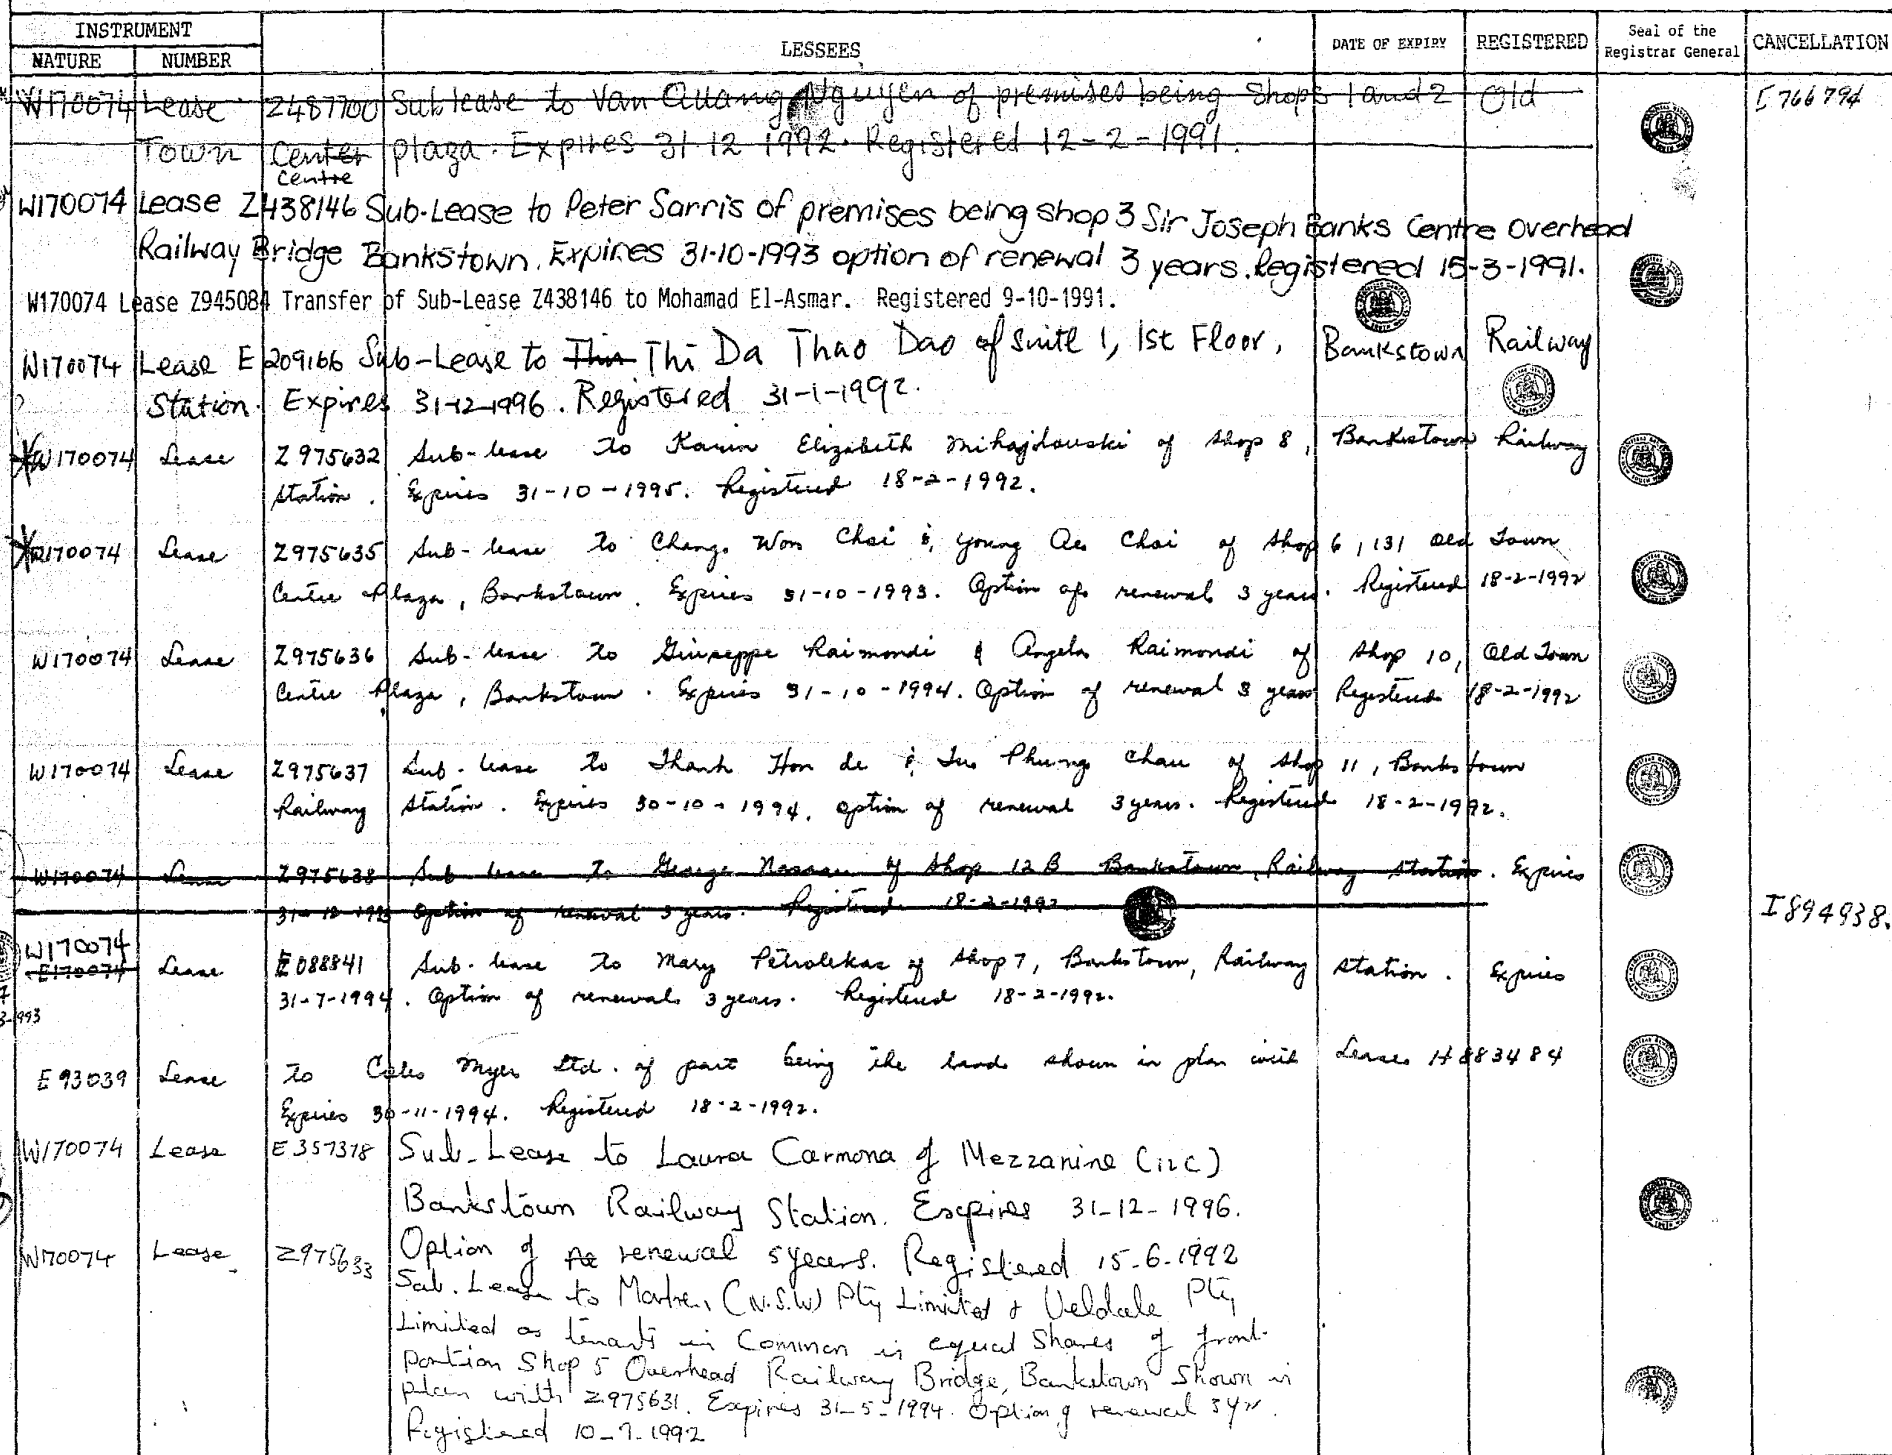 INSTRUMENT
NATURE NUMBER LESSEES DATE OF EXPIRY REGISTERED Seal of the Registrar General CANCELLATION
W170074 Lease Z487700 Sublease to Van Quang Nguyen of premises being Shops 1 and 2 Old I766794
Town Center plaza. Expires 31 12 1992. Registered 12-2-1991.
Centre
W170074 Lease Z438146 Sub-Lease to Peter Sarris of premises being shop 3 Sir Joseph Banks Centre Overhead
Railway Bridge Bankstown. Expires 31-10-1993 option of renewal 3 years. Registered 15-3-1991.
W170074 Lease Z945084 Transfer of Sub-Lease Z438146 to Mohamad El-Asmar. Registered 9-10-1991.
W170074 Lease E209166 Sub-Lease to Thi Da Thao Dao of Suite 1, 1st Floor, Bankstown Railway
Station. Expires 31-12-1996. Registered 31-1-1992.
W170074 Lease Z975632 Sub-lease to Karin Elizabeth Mihajlouski of Shop 8, Bankstown Railway
Station. Expires 31-10-1995. Registered 18-2-1992.
W170074 Lease Z975635 Sub-lease to Chang Won Choi & Young Ae Choi of Shop 6, 131 Old Town
Centre Plaza, Bankstown. Expires 31-10-1993. Option of renewal 3 years. Registered 18-2-1992
W170074 Lease Z975636 Sub-lease to Giuseppe Raimondi & Angela Raimondi of Shop 10, Old Town
Centre Plaza, Bankstown. Expires 31-10-1994. Option of renewal 3 years Registered 18-2-1992
W170074 Lease Z975637 Sub-lease to Thanh Hon de & Tu Phung Chau of Shop 11, Bankstown
Railway Station. Expires 30-10-1994. Option of renewal 3 years. Registered 18-2-1992.
W170074 Lease Z975638 Sub lease to George Nassau of Shop 12B Bankstown, Railway Station. Expires
31-12-1993 Option of renewal 3 years. Registered 18-2-1992 I894938.
W170074
E170074 Lease E088841 Sub-lease to Mary Petrolekas of Shop 7, Bankstown, Railway Station. Expires
31-7-1994. Option of renewal 3 years. Registered 18-2-1992.
E93039 Lease to Coles Myer Ltd. of part being the land shown in plan with Lease H883484
Expires 30-11-1994. Registered 18-2-1992.
W170074 Lease E357378 Sub-Lease to Laura Carmona of Mezzanine (12C)
Bankstown Railway Station. Expires 31-12-1996.
Option of re renewal 5 years. Registered 15-6-1992
W170074 Lease Z975633 Sub. Lease to (N.S.W) Pty Limited & Veldale Pty
Limited as tenants in Common in equal Shares of front
portion Shop 5 Overhead Railway Bridge, Bankstown Shown in
plan with Z975631. Expires 31-5-1994. Option of renewal 3yr.
Registered 10-7-1992